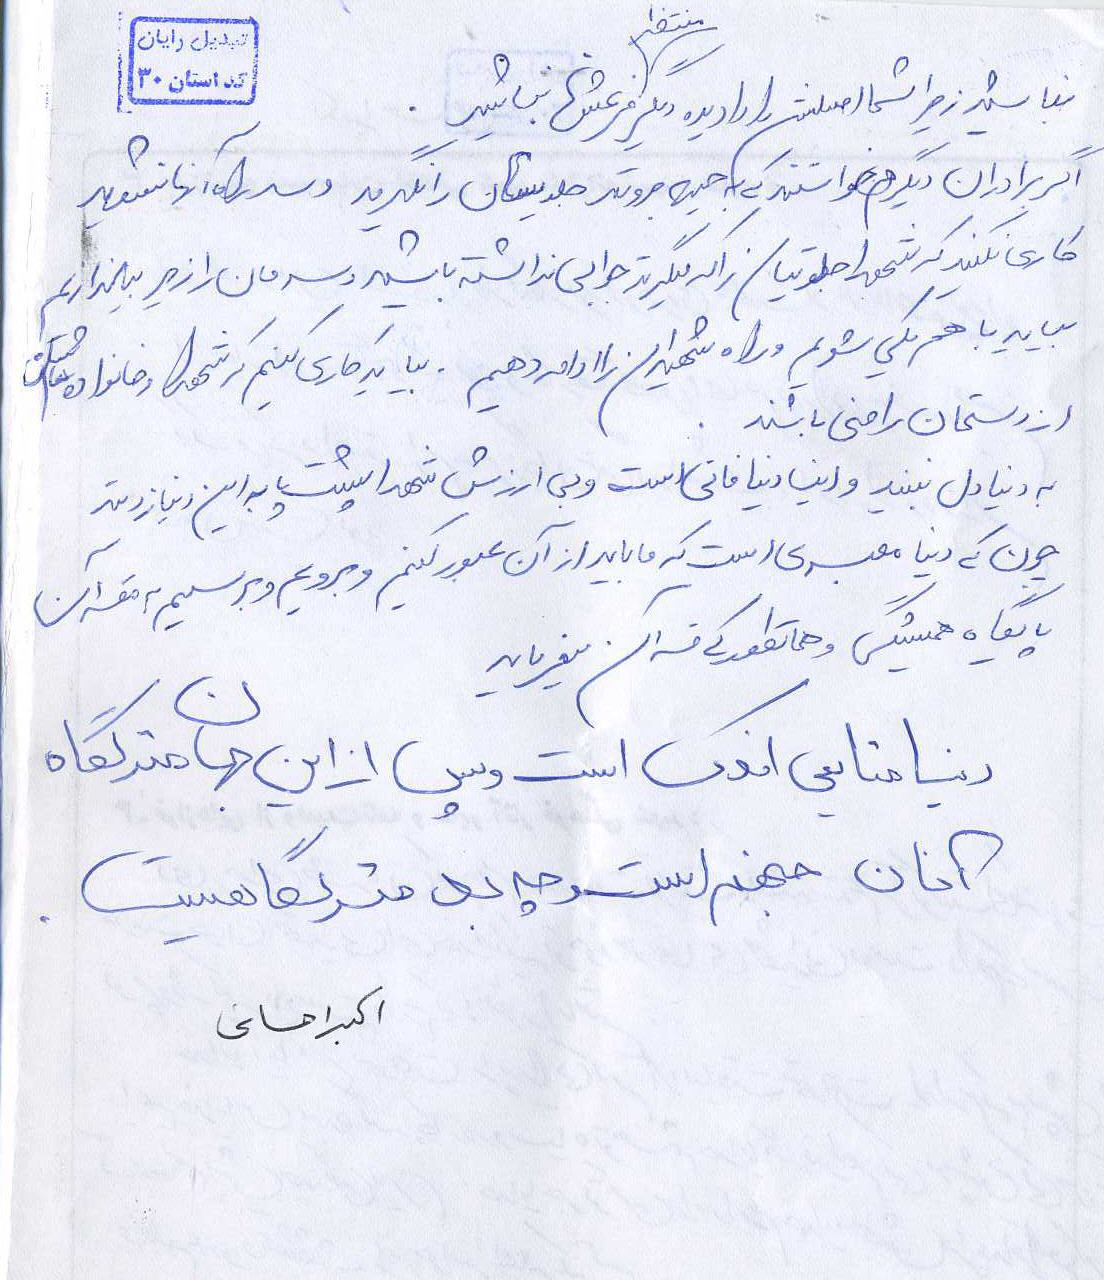 تبدیل رایان
کد استان ۳۰
منتظر
نباشید زیرا شما اصلش را دادیده دیگر فرعش نباشید.
اگر برادران دیگر هم خواستند که به جبهه بروند جلویشان را نگیرید و سد راه آنها نشوید
کاری نکنید که شهدا جلوتیان را که بگیرند جوابی نداشته باشید و سرمان را زیر بیاندازیم
بیایید با هم یکی شویم و راه شهیدان را ادامه دهیم. بیایید کاری کنیم که شهدا و خانواده هایشان
از دستمان راضی باشند.
به دنیا دل نبنید و اینیا دنیا فانی است و بی ارزش شهدا پشت پا به این دنیا زدند
چون که دنیا معبری است که ما باید از آن عبور کنیم و برویم و برسیم به
پایگاه همیشگی و همانطور که قرآن میفرماید
دنیا متاعی اندک است و پس از این جهان منزلگاه
آنان جهنم است و چه بد منزلگاهیست.
اکبر احسانی